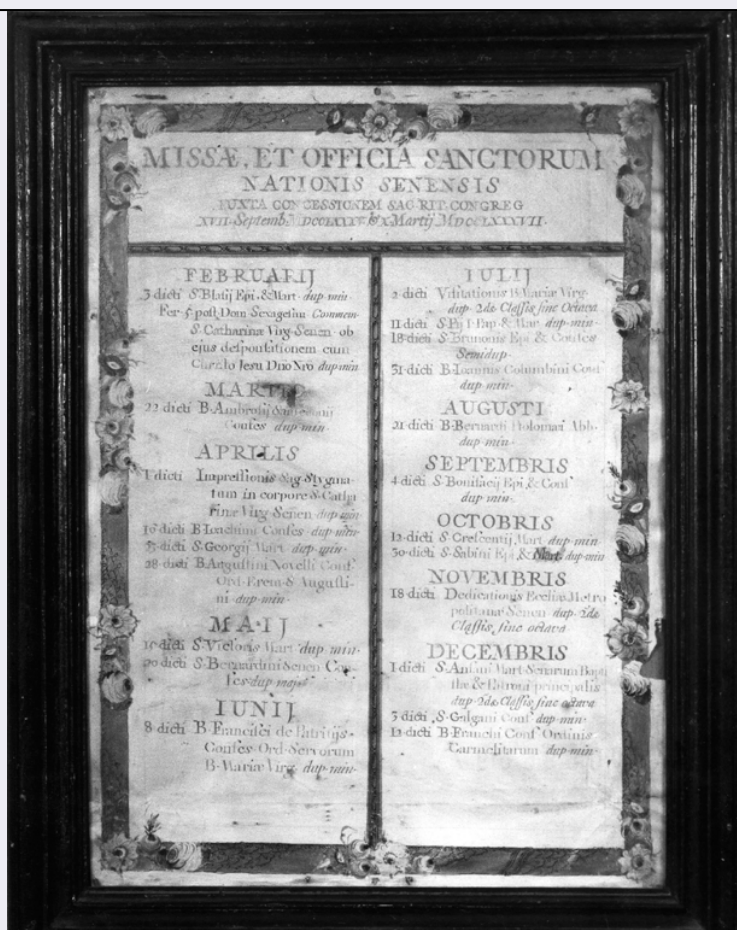 MISSÆ, ET OFFICIA SANCTORUM
NATIONIS SENENSIS
IUXTA CONCESSIONEM SAC·RIT·CONGREG
XVII·Septemb. & X·Martij MDCCLXXXVII·
FEBRUARIJ
3 dicti S·Blasij Epi·&Mart· dup·min·
Fer·5·post Dom·Sexagesim· Commem·
S·Catharinæ Virg·Senen·ob
ejus desponsationem cum
Christo Jesu Dño Nro dup·min
MARTIJ
22 dicti B·Ambrosij
Confes dup·min·
APRILIS
1 dicti Impressionis Sag·Stygma
tum in corpore S·Catha
rinæ Virg·Senen· dup·min·
16 dicti B·Ioachini Confes· dup·min·
dicti S·Georgij Mart· dup·min·
28 dicti B·Augustini Novelli Conf·
Ord·Erem·S·Augusti-
ni·dup·min·
MAIJ
dicti S·Victoris Mart· dup·min·
20 dicti S·Bernardini Senen·Con-
fes·dup·maj·
IUNIJ
8 dicti B·Francisci de Patritijs·
Confes·Ord·Servorum
B·Mariæ Virg· dup·min·
IULIJ
2 dicti Visitationis B·Mariæ Virg·
dup·2dæ Classis, sine Octava
11 dicti S·Pij I·Pap·& Mar· dup·min·
18 dicti S·Brunonis Epi & Confes
Semidup·
31 dicti B·Ioannis Columbini Conf
dup·min·
AUGUSTI
21 dicti B·Bernardi Ptolomæi Abb·
dup·min·
SEPTEMBRIS
4 dicti S·Bonifacij Epi·& Conf
dup·min·
OCTOBRIS
12 dicti S·Crescentij Mart· dup·min
30 dicti S·Sabini Epi·& Mart· dup·min
NOVEMBRIS
18 dicti Dedicationis Eccliæ Metro
politanæ Senen· dup·2dæ
Classis, sine octava
DECEMBRIS
1 dicti S·Ansani Mart·Senarum Bapti
stæ & Patroni principalis
dup·2dæ Classis, sine octava
3 dicti S·Galgani Conf· dup·min·
12 dicti B·Franchi Conf·Ordinis
Carmelitarum dup·min·